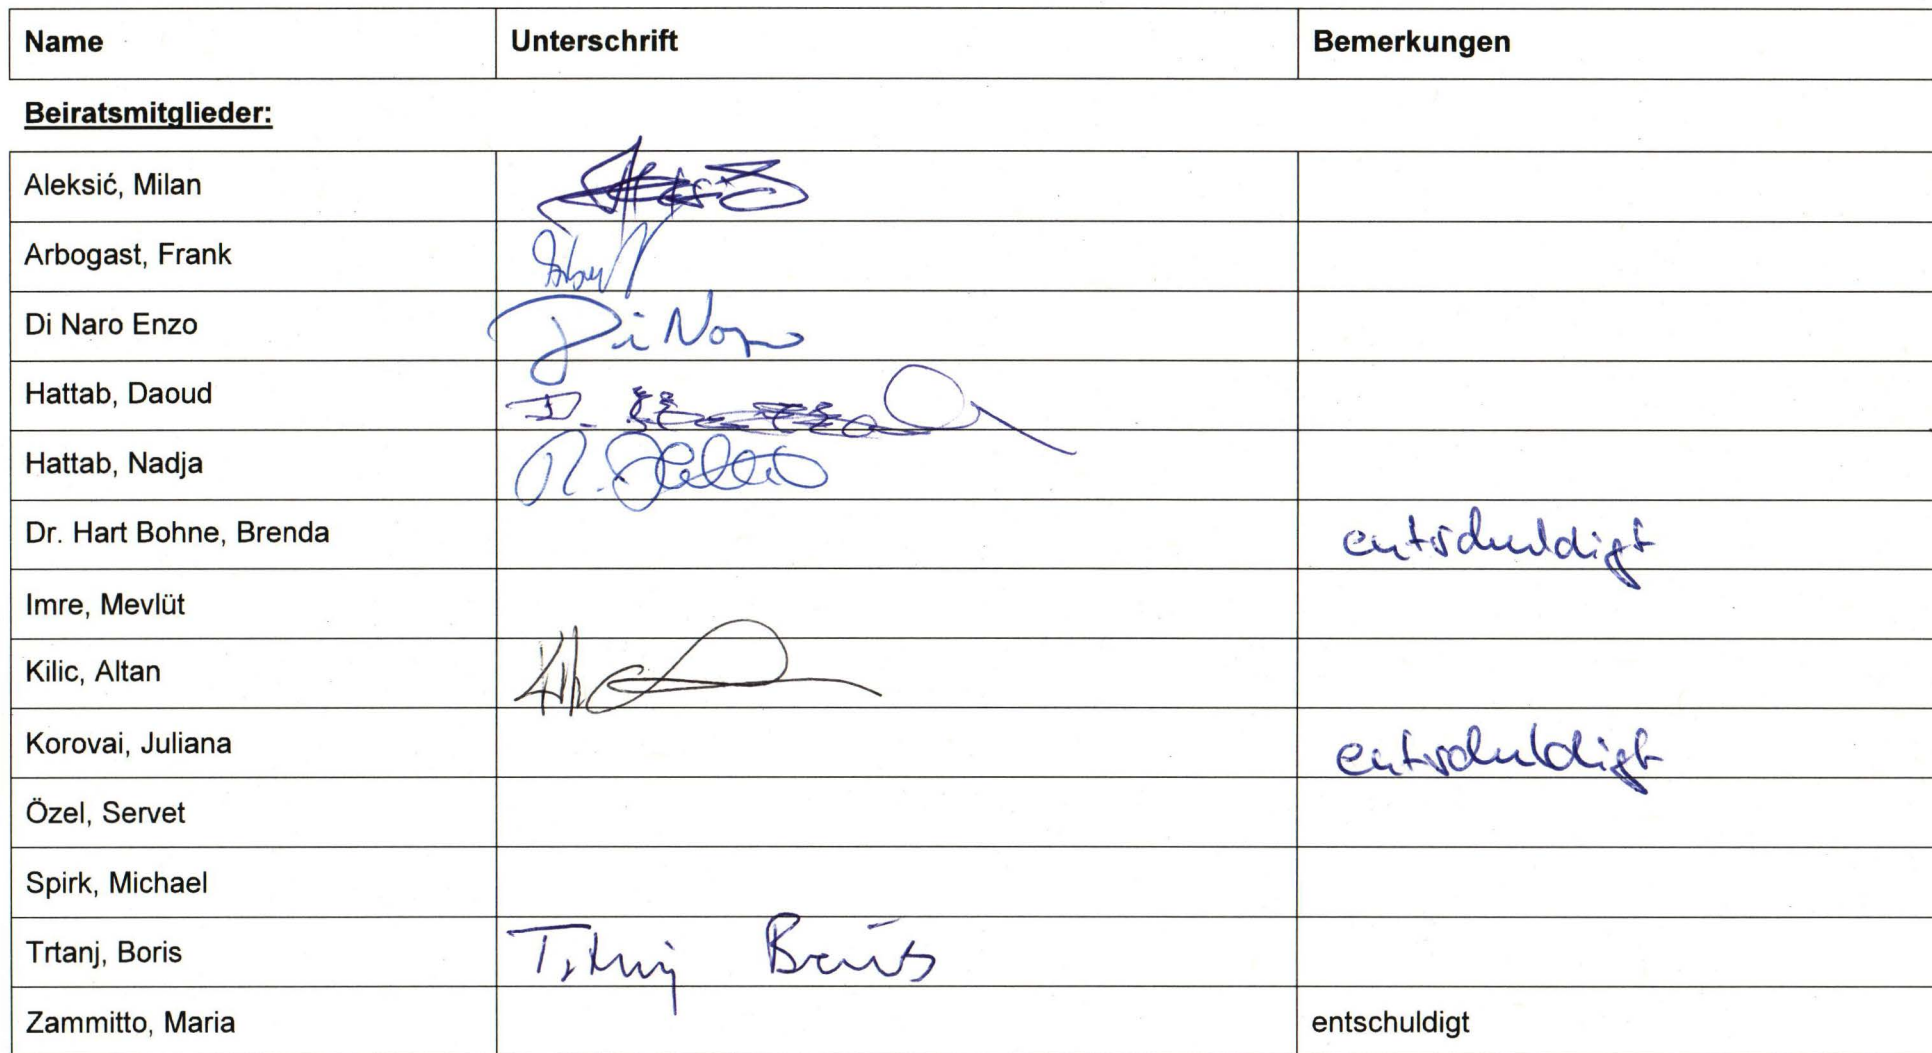 Name Unterschrift Bemerkungen
Beiratsmitglieder:
Aleksić, Milan
Arbogast, Frank
Di Naro Enzo Di Naro
Hattab, Daoud
Hattab, Nadja
Dr. Hart Bohne, Brenda entschuldigt
Imre, Mevlüt
Kilic, Altan
Korovai, Juliana entschuldigt
Özel, Servet
Spirk, Michael
Trtanj, Boris Trtanj Boris
Zammitto, Maria entschuldigt